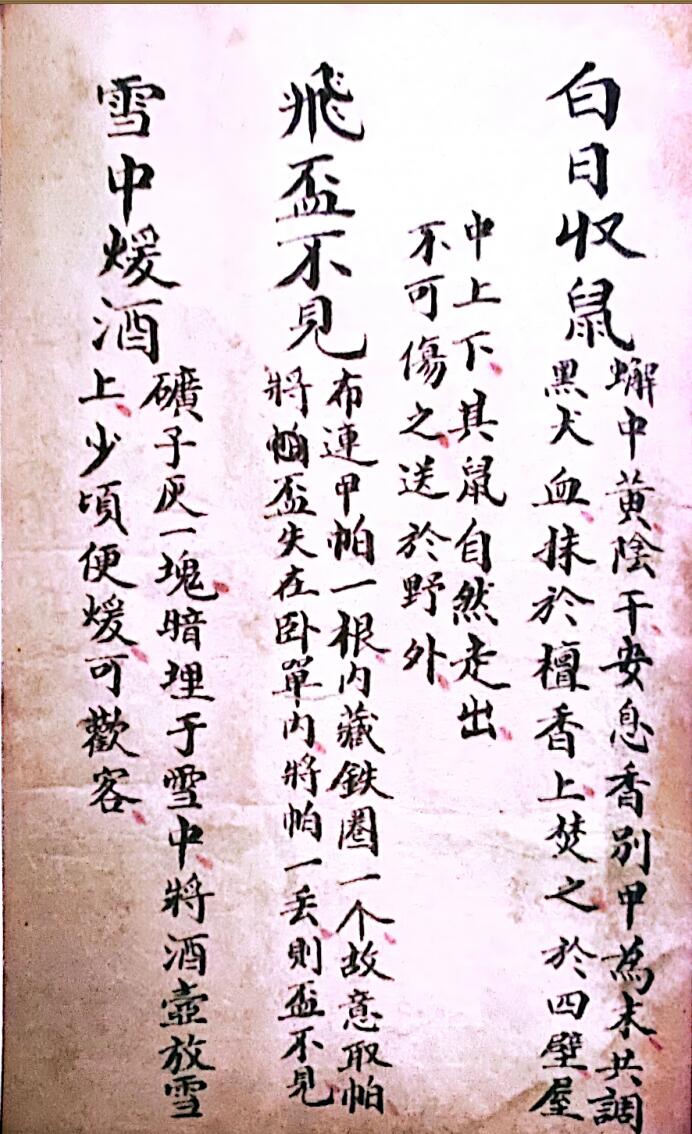 白日収鼠
蠏中黃陰干安息香別甲為末共調
黑犬血抹於檀香上焚之於四壁屋
中上下其鼠自然走出
不可傷之送於野外
飛盃不見
布連甲帕一根內藏鉄圈一个故意取帕
將帕盃失在卧單內將帕一丢則盃不見
雪中煖酒
礦子灰一塊暗埋于雪中將酒壺放雪
上少頃便煖可歡客